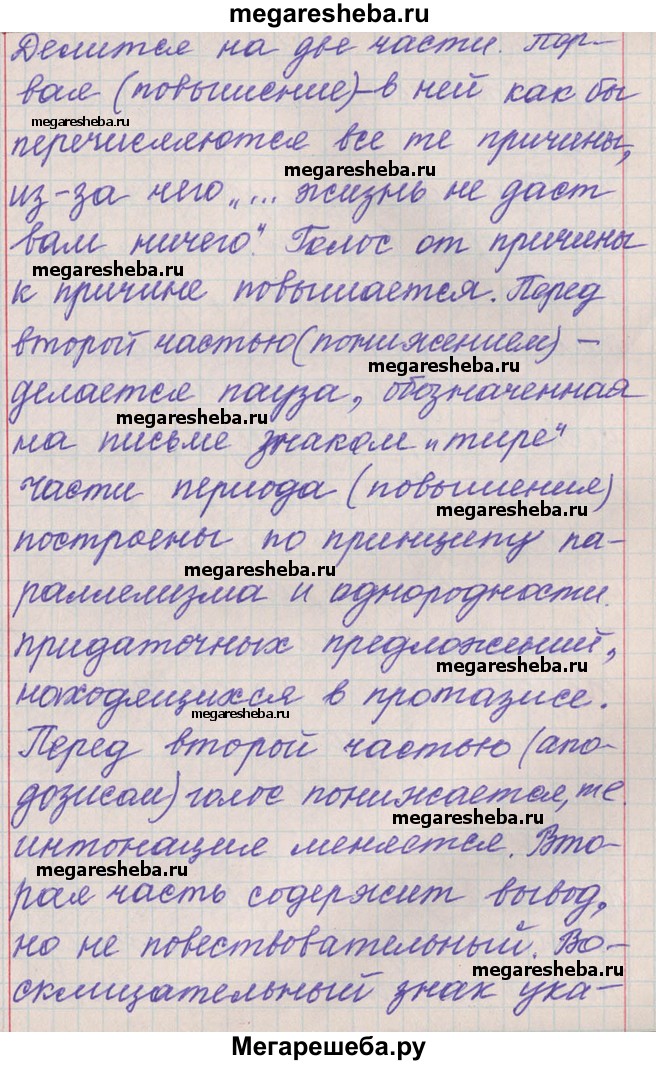 megaresheba.ru
Делится на две части. Пер-
вая (повышение)-в ней как бы
megaresheba.ru
перечисляются все те причины,
megaresheba.ru
из-за чего „... жизнь не даст
вам ничего". Голос от причины
megaresheba.ru
к причине повышается. Перед
второй частью (понижением) -
megaresheba.ru
делается пауза, обозначенная
megaresheba.ru
на письме знаком „тире"
Части периода (повышения)
megaresheba.ru
построены по принципу па-
megaresheba.ru
раллелизма и однородности
придаточных предложений,
megaresheba.ru
находящихся в протазисе.
megaresheba.ru
Перед второй частью (апо-
дозисом) голос понижается, т.е.
megaresheba.ru
интонация меняется. Вто-
megaresheba.ru
рая часть содержит вывод,
но не повествовательный. Во-
megaresheba.ru
склицательный знак ука-
Мегарешеба.ру